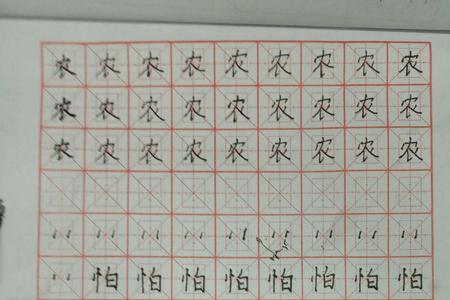 农农农农农农农农农
农农农农农农农农农
农农农农农农农农农
怕怕怕怕怕怕怕怕